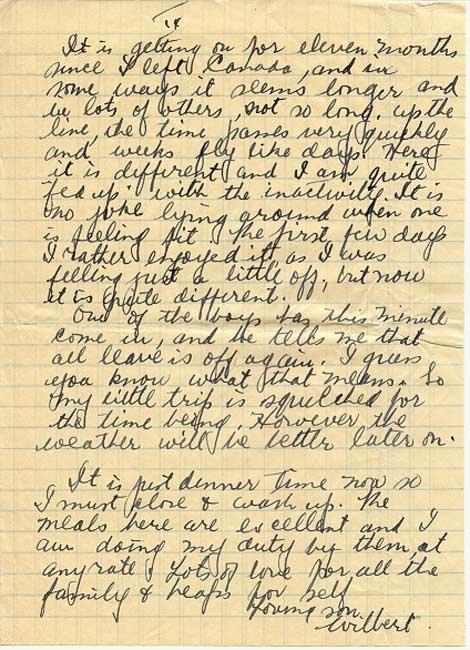 It is getting on for eleven months
since I left Canada, and in
some ways it seems longer and
in lots of others, not so long. up the
line, the time passes very quickly
and weeks fly like days. Here
it is different and I am quite
fed up with the inactivity. It is
no joke lying around when one
is feeling fit. The first few days
I rather enjoyed it, as I was
feeling just a little off, but now
it is quite different.
One of the boys has this minute
come in, and he tells me that
all leave is off again. I guess
you know what that means. So
my little trip is squelched for
the time being. However the
weather will be better later on.
It is just dinner time now so
I must close & wash up. The
meals here are excellent and I
am doing my duty by them at
any rate. Lots of love for all the
family & heaps for self
Loving son
Wilbert.